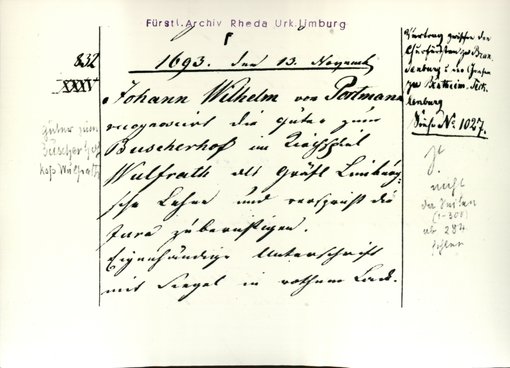 Fürstl. Archiv Rheda Urk. Limburg
832
XXXV
1693. den 13. Novemb.
Johann Wilhelm von Portmann
recognoscirt die Güter zum
Buscherhof im Kirchspiel
Wulfrath als Gräfl Limburg-
sche Lehne und verspricht die
Jura zu
Eigenhändige Unterschrift
mit Siegel in rothem Lack.
Güter zum
Buscherhof
Vertrag zwischen den
Churfürsten zu Bran
denburg u. den Grafen
zu Bentheim-Tek-
lenburg
Siehe No 1027.
nicht
ab 284